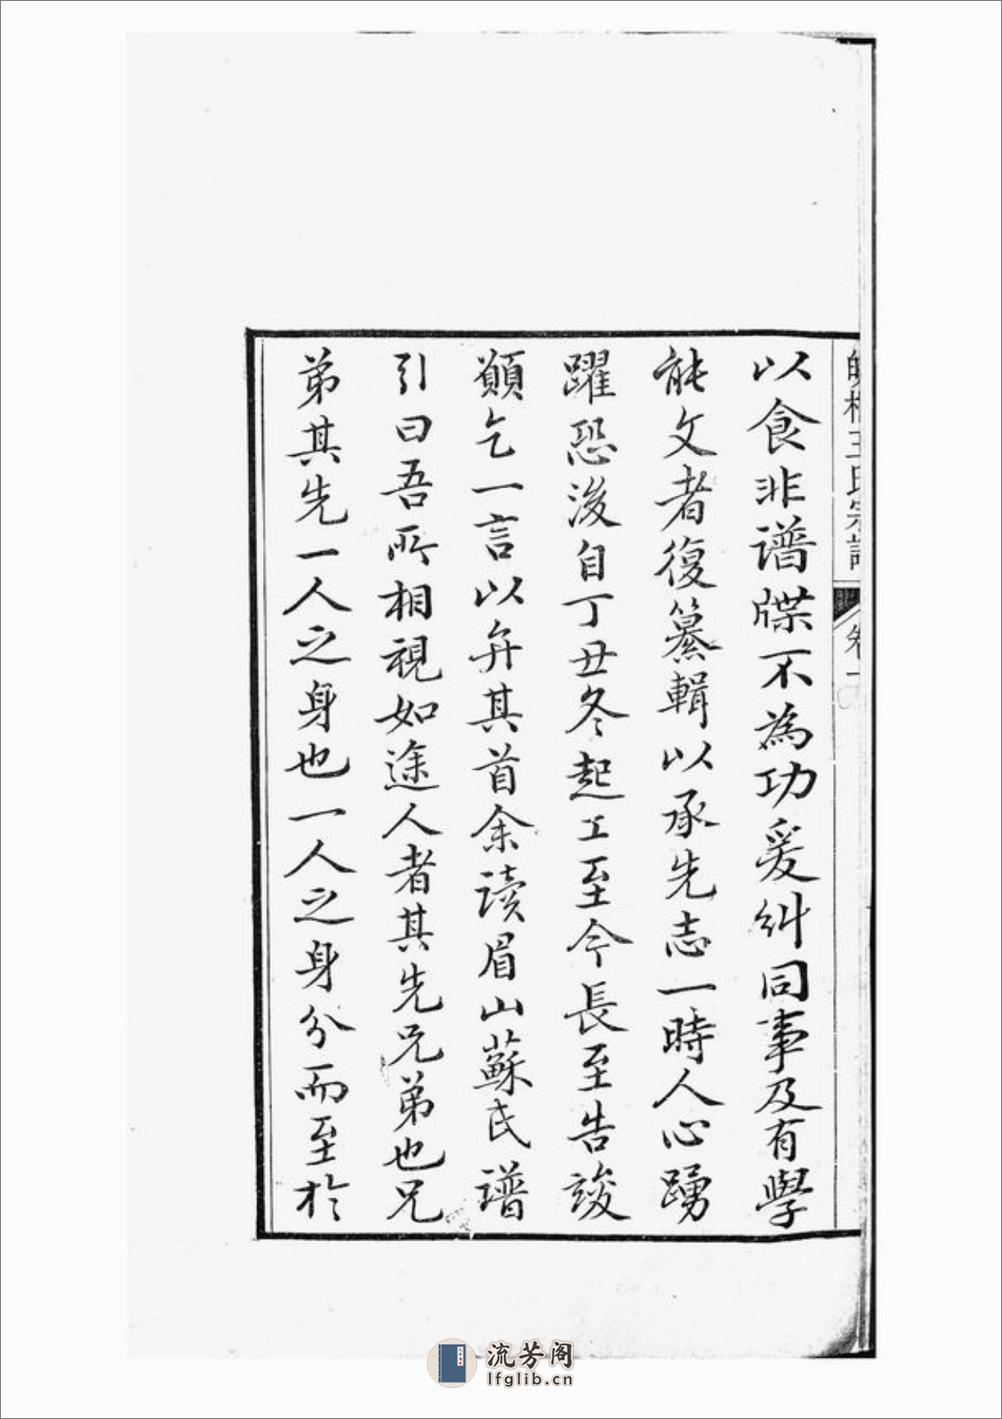 以食非譜牒不為功爰糾同事及有學
能文者復纂輯以承先志一時人心踴
躍恐後自丁丑冬起工至今長至告竣
顧乞一言以弁其首余读眉山蘇氏譜
引曰吾所相視如途人者其先兄弟也兄
弟其先一人之身也一人之身分而至於
王氏宗譜
卷一
流芳阁
lfglib.cn